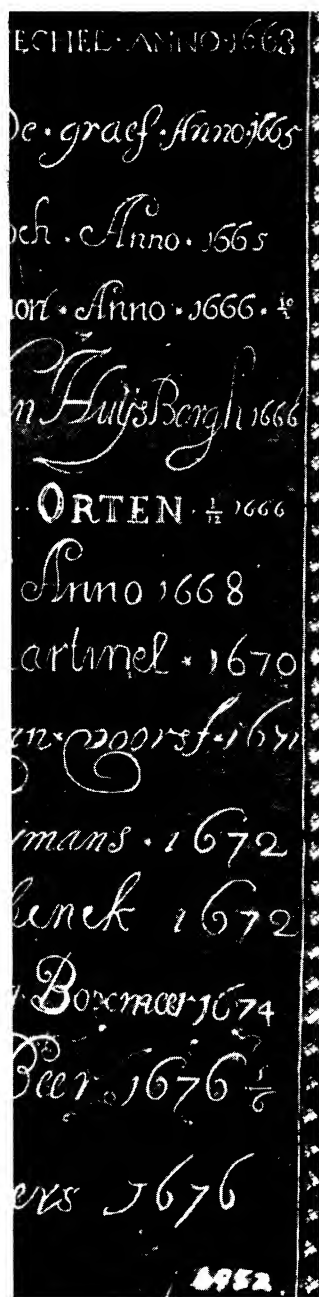 ECHEL · ANNO · 1663
De · graef · Anno · 1665
och · Anno · 1665
on · Anno · 1666 ·
n HuijsBergh 1666
ORTEN · 1/12 1666
Anno 1668
artinel * 1670
an · voorst · 1671
imans · 1672
benek 1672
Boxmeer 1674
Beer 1676 1/6
ers 1676
6952